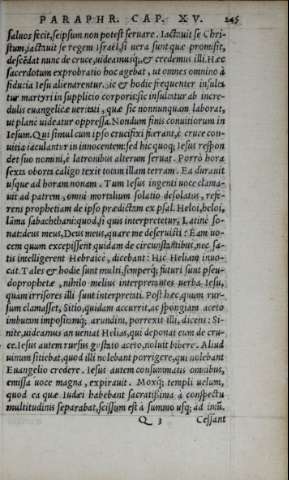 PARAPHR. CAP. XV. 245
saluos fecit, seipsum non potest seruare. Iactauit se Chri-
stum, iactauit se regem Israel, si uera sunt quæ promisit,
descẽdat nunc de cruce, uideamusq;, & credemus illi. Hæc
sacerdotum exprobratio hoc agebat, ut omnes omnino à
fiducia Iesu alienarentur. Sic & hodie frequenter insulta
tur martyri in supplicio corporis: sic insultatur ab incre-
dulis euangelicæ ueritati, quæ sic nonnunquam laborat,
ut planè uideatur oppressa. Nondum finis conuitiorum in
Iesum. Qui simul cum ipso crucifixi fuerant, è cruce con-
uitia iaculantur in innocentem: sed hic quoq; Iesus respon
det suo nomini, è latronibus alterum seruat. Porrò hora
sexta oboris caligo texit totam illam terram. Ea durauit
usque ad horam nonam. Tum Iesus ingenti uoce clama-
uit ad patrem, omni mortalium solatio desolatus, refe-
rens prophetiam de ipso prædictam ex psal. Heloi, heloi,
lama sabachthani: quod, si quis interpretetur, Latinè so-
nat: deus meus, Deus meus, quare me deseruisti: Eam uo-
cem quum excepissent quidam de circumstãtibus, nec sa-
tis intelligerent Hebraicè, dicebant: Hic Heliam inuo-
cat. Tales & hodie sunt multi, semperq; futuri sunt pseu-
doprophetæ, nihilo melius interpretantes uerba Iesu,
quàm irrisores illi sunt interpretati. Post hæc, quum rur-
sum clamasset, Sitio, quidam accurrit, ac spongiam aceto
imbutam impositamq; arundini, porrexit illi, dicens: Si-
nite, uideamus an ueniat Helias, qui deponat eum de cru-
ce. Iesus autem rursus gustato aceto, noluit bibere. Aliud
uinum sitiebat, quod illi nolebant porrigere, qui nolebant
Euangelio credere. Iesus autem consummatis omnibus,
emissa uoce magna, expirauit. Moxq; templi uelum,
quod ea quæ Iudæi habebant sacratissima à conspectu
multitudinis separabat, scissum est à summo usq; ad imũ.
Q 3 Cessant